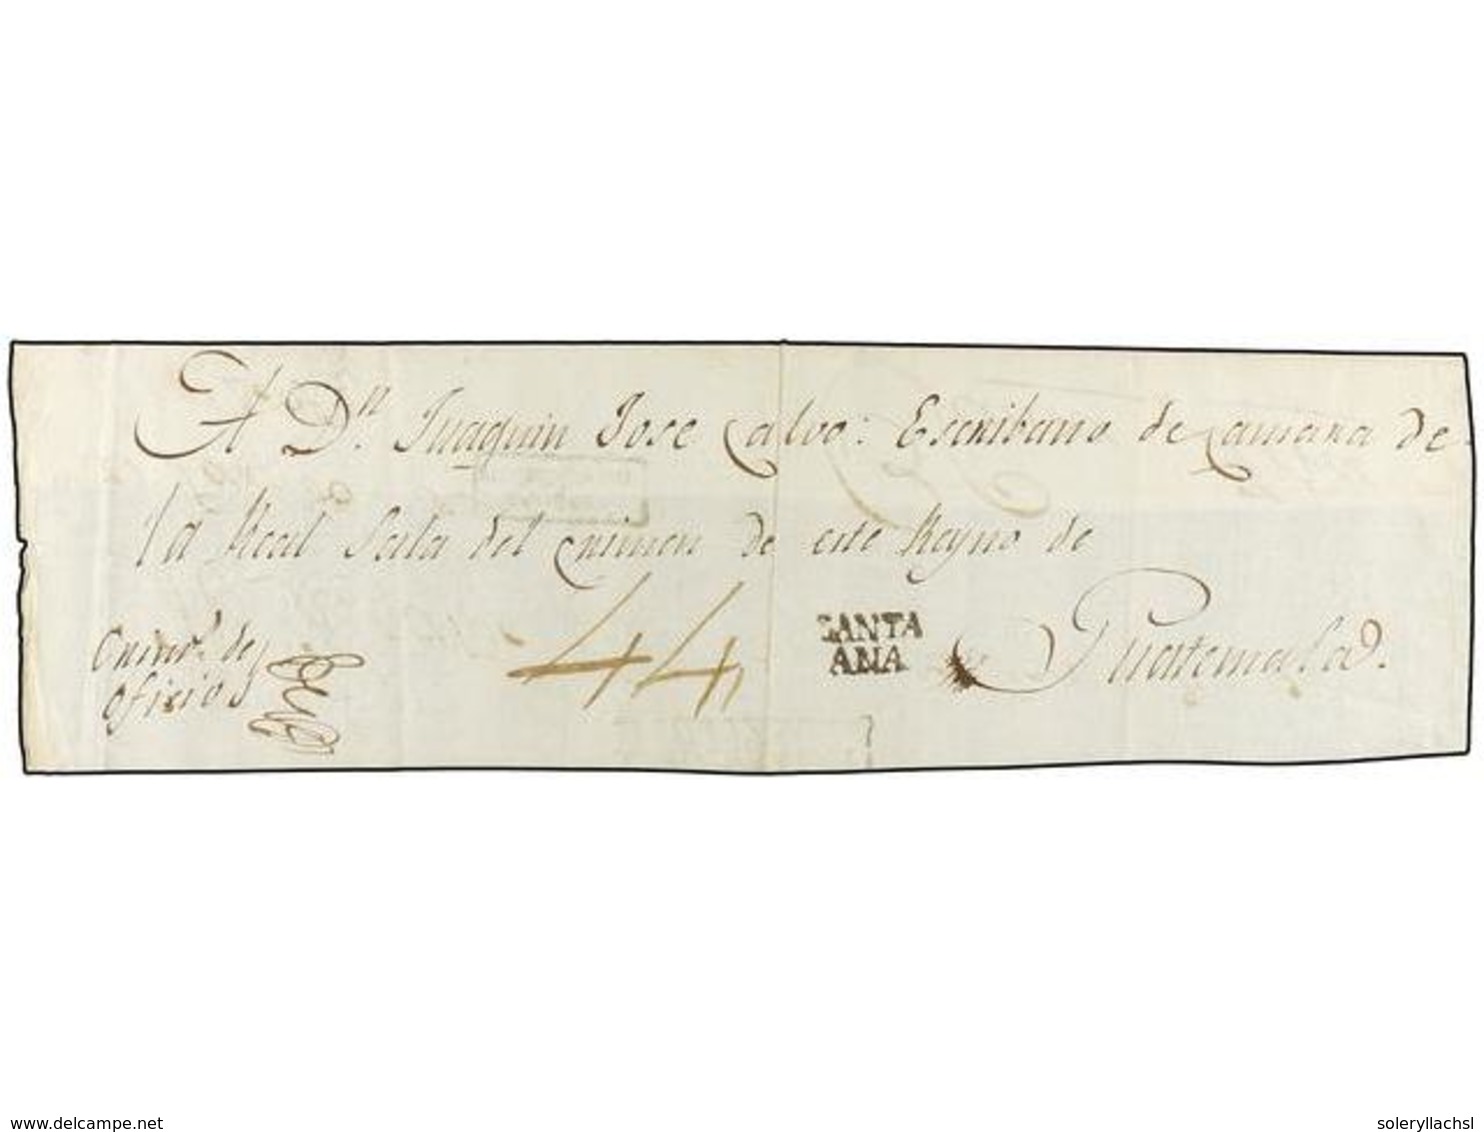 A D.n Juaquin Jose Calvo: Escribano de Camara de
la Real Sala del Crimen de este Reyno de
44 SANTA
ANA Guatemala.
de
oficios
delcampe.net soleryllachsl